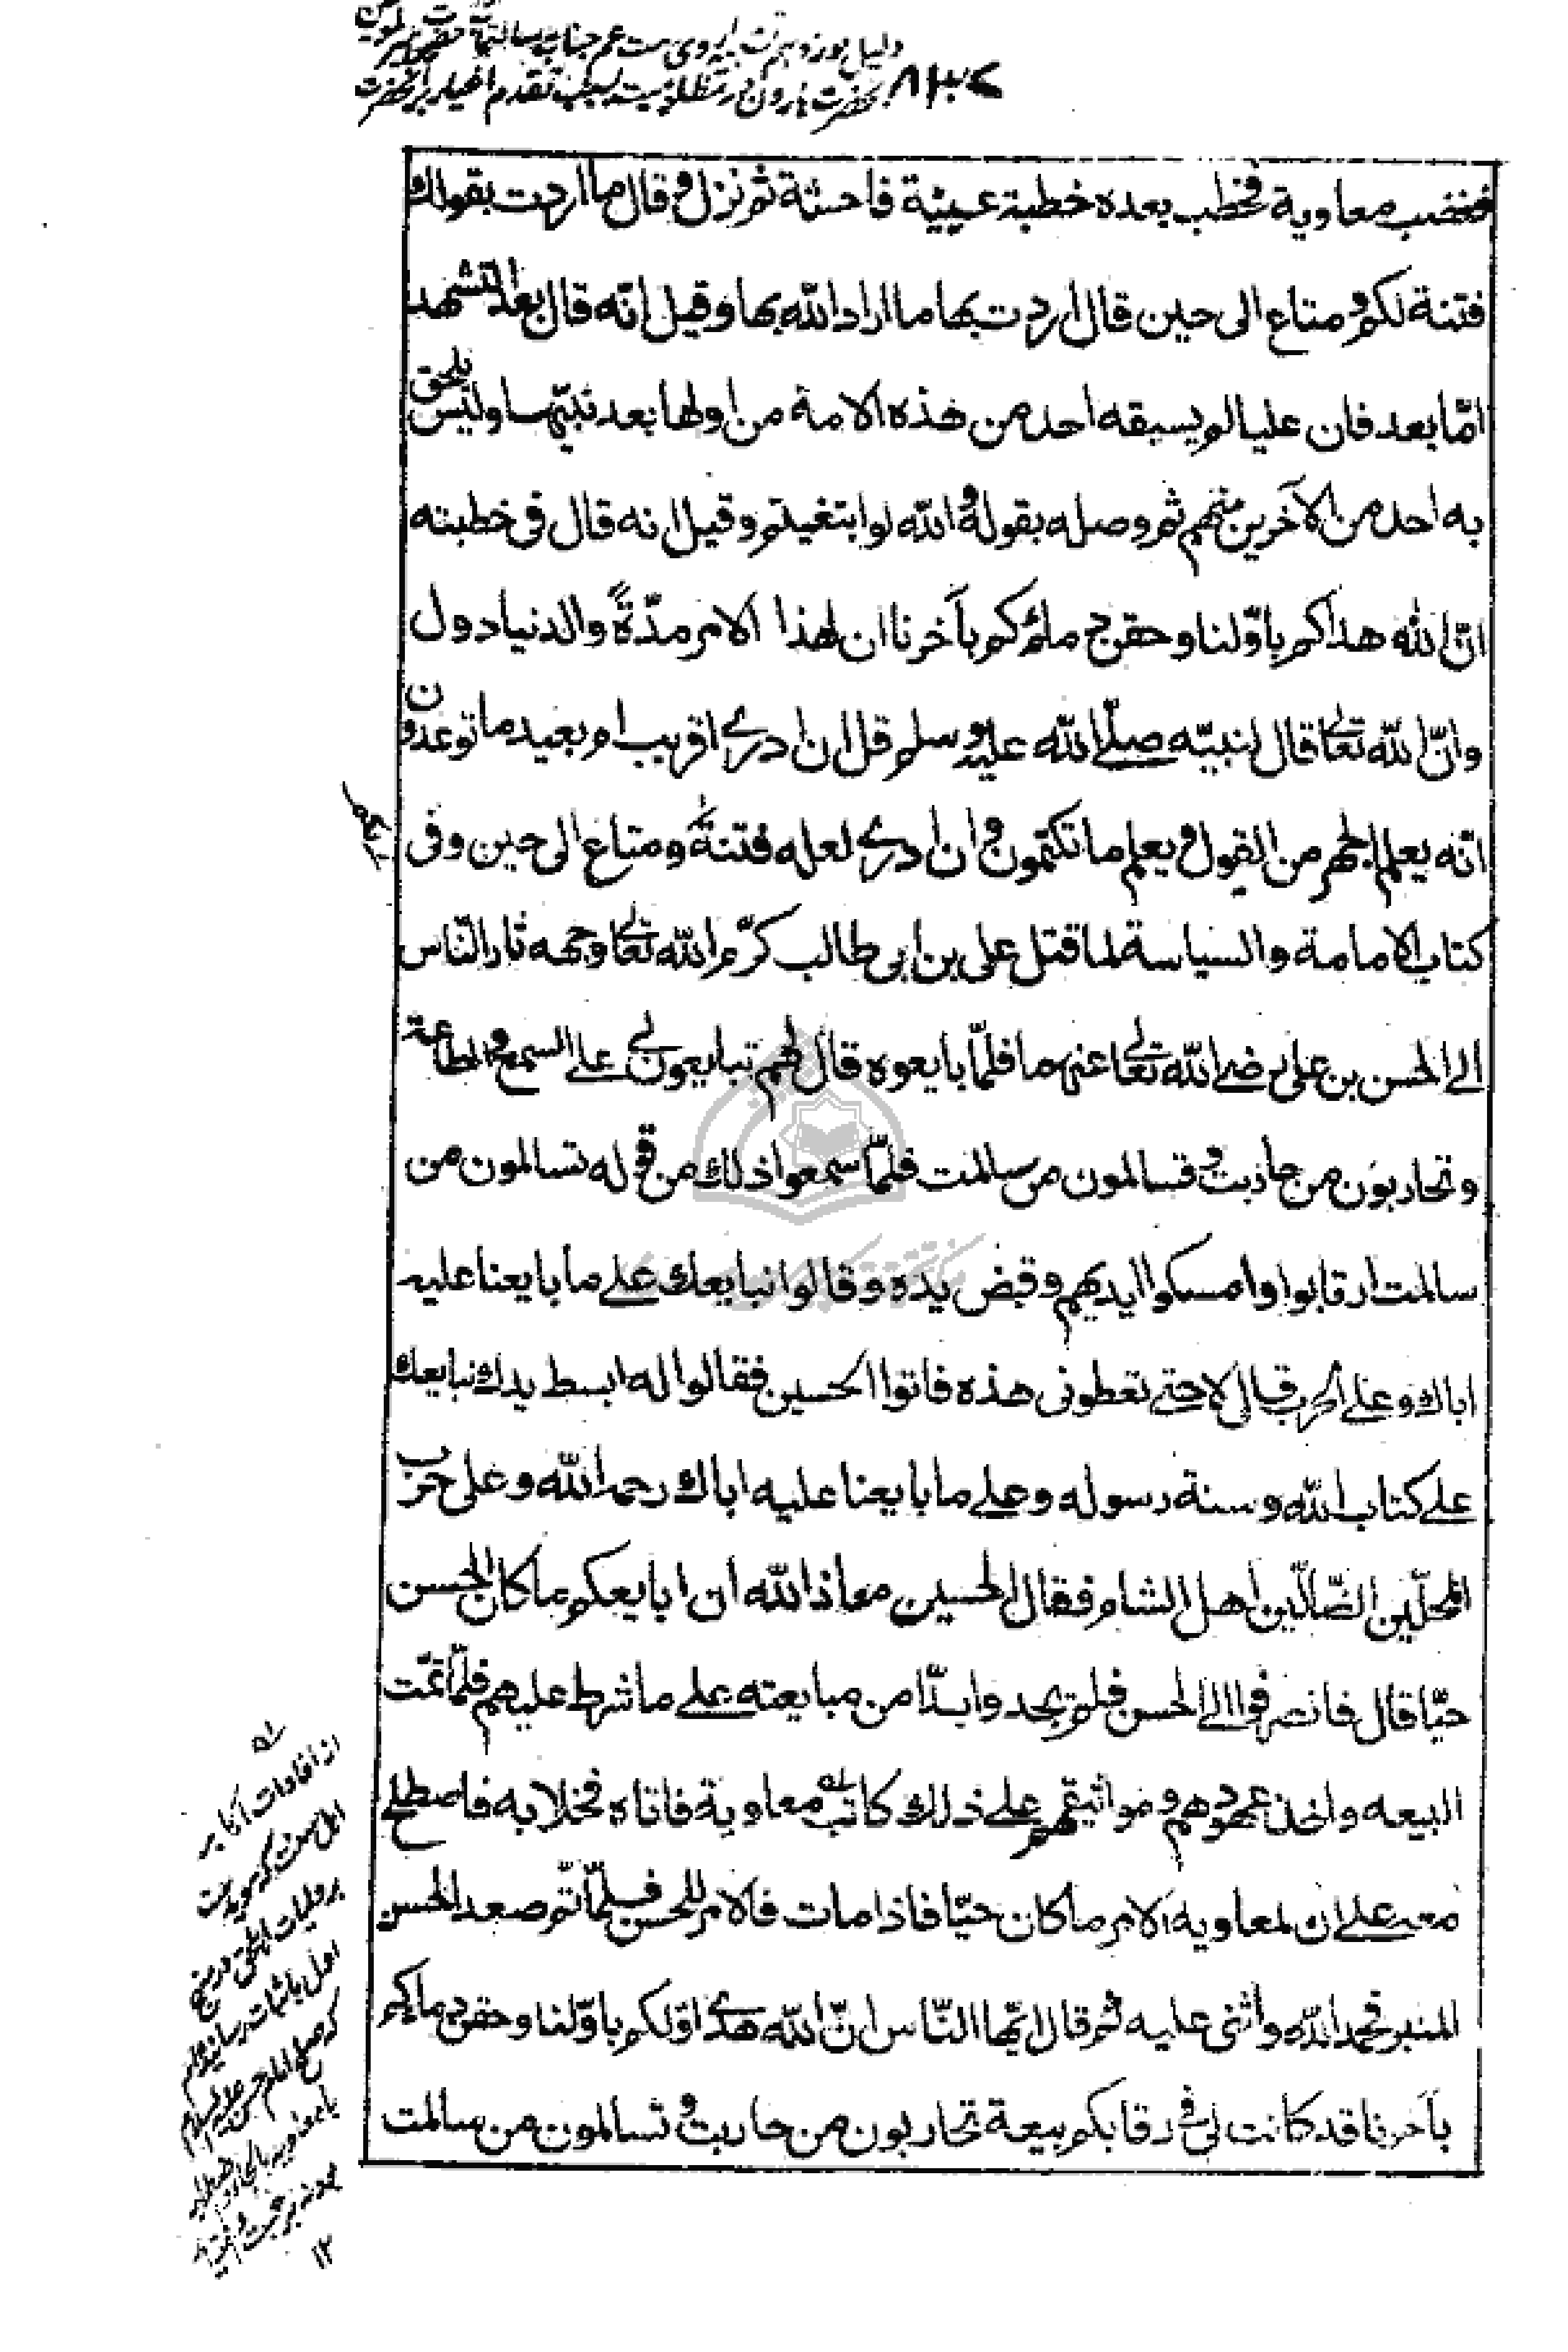 فغضب معاوية فخطب بعده خطبة عييية فاحشة ثم نزل وقال ما اردت بقولك
فتنة لكم ومتاع الى حين قال اردت بها ما اراد الله بها وقيل انّه قال بعد التشهد
امّا بعد فان عليا لم يسبقه احد من هذه الامة من اولها بعد نبيّها وليس يلحق
به احد من الآخرين منهم ثم وصله بقوله والله لو ابتغيتم وقيل انه قال فى خطبته
انّ الله هداكم باوّلنا وحقن دمائكم بآخرنا ان لهذا الامر مدّةً والدنيا دول
وانّ الله تعالى قال لنبيّه صلّى الله عليه وسلم قل ان ادرى اقريب ام بعيد ما توعدون
انّه يعلم الجهر من القول ويعلم ما تكتمون وان ادرى لعله فتنة لكم ومتاع الى حين وفى
كتاب الامامة والسياسة لما قتل على بن ابى طالب كرّم الله تعالى وجهه ثار النّاس
الى الحسن بن على رضى الله تعالى عنهما فلمّا بايعوه قال لهم تبايعون لى على السمع والطاعة
وتحاربون من حاربت وتسالمون من سالمت فلمّا سمعوا ذلك من قوله تسالمون من
سالمت ارتابوا وامسكوا ايديهم وقبض يده وقالوا نبايعك على ما بايعنا عليه
اباك وعلى الحرب قال لا حتى تعطونى هذه فاتوا الحسين فقالوا له ابسط يدك نبايعك
على كتاب الله وسنة رسوله وعلى ما بايعنا عليه اباك رحمه الله وعلى حرب
المحلّين الضّالّين اهل الشام فقال الحسين معاذ الله ان ابايعكم ما كان الحسن
حيّا قال فانصرفوا الى الحسن فلم يجدوا بدّا من مبايعته على ما شرط عليهم فلمّا تمّت
البيعه واخذ عهودهم ومواثيقهم على ذلك كاتب معاوية فاتاه فخلا به فاصطلح
معه على ان لمعاويه الامر ما كان حيّا فاذا مات فالامر للحسن فلمّا تمّ صعد الحسن
المنبر فحمد الله واثنى عليه ثم قال ايّها النّاس انّ الله هدى اوّلكم باوّلنا وحقن دماءكم
بآخرنا قد كانت لى فى رقابكم بيعة تحاربون من حاربت وتسالمون من سالمت